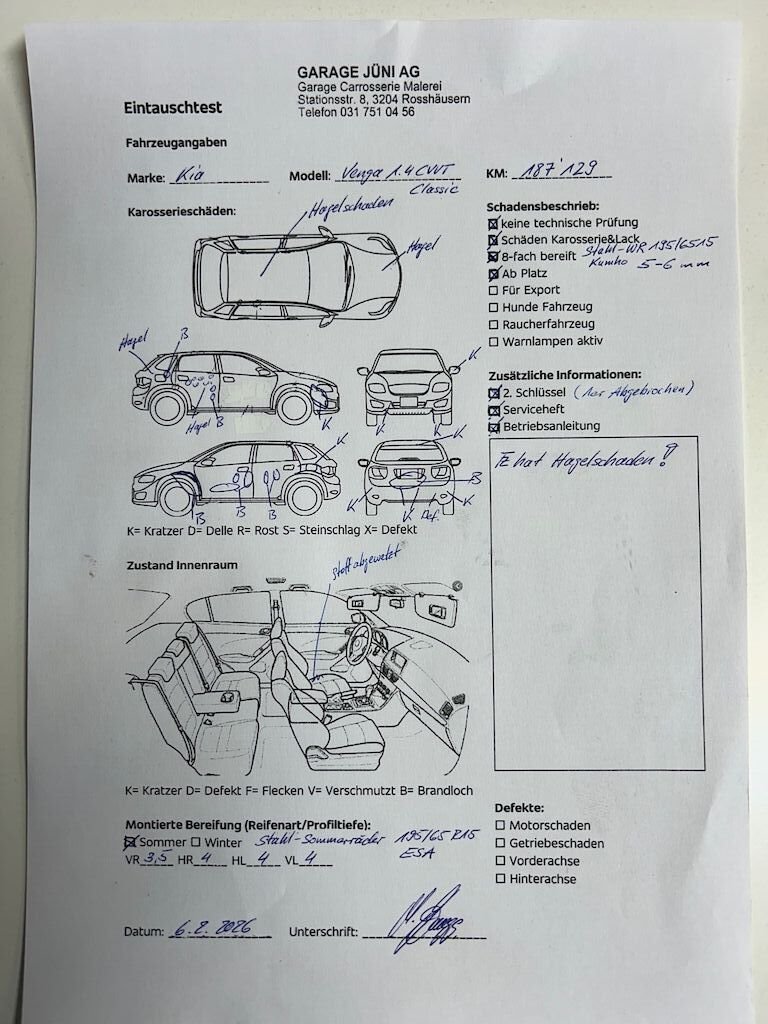 GARAGE JÜNI AG
Garage Carrosserie Malerei
Stationsstr. 8, 3204 Rosshäusern
Telefon 031 751 04 56
Eintauschtest
Fahrzeugangaben
Marke: Kia Modell: Venga 1.4 CVVT Classic KM: 187'129
Karosserieschäden:
Hagelschaden
Hagel
Hagel B
Hagel B K
K
K K
K
B B B
K K
K B K
K Def.
K= Kratzer D= Delle R= Rost S= Steinschlag X= Defekt
Schadensbeschrieb:
☒ keine technische Prüfung
☒ Schäden Karosserie&Lack
☒ 8-fach bereift Stahl-WR 195/6515
Kumho 5-6 mm
☒ Ab Platz
☐ Für Export
☐ Hunde Fahrzeug
☐ Raucherfahrzeug
☐ Warnlampen aktiv
Zusätzliche Informationen:
☒ 2. Schlüssel (1er Abgebrochen)
☒ Serviceheft
☒ Betriebsanleitung
Fz hat Hagelschaden!
Zustand Innenraum
Stoff abgewetzt
K= Kratzer D= Defekt F= Flecken V= Verschmutzt B= Brandloch
Montierte Bereifung (Reifenart/Profiltiefe):
☒ Sommer ☐ Winter Stahl-Sommerräder 195/65 R15
ESA
VR 3,5 HR 4 HL 4 VL 4
Defekte:
☐ Motorschaden
☐ Getriebeschaden
☐ Vorderachse
☐ Hinterachse
Datum: 6.2.2026 Unterschrift: